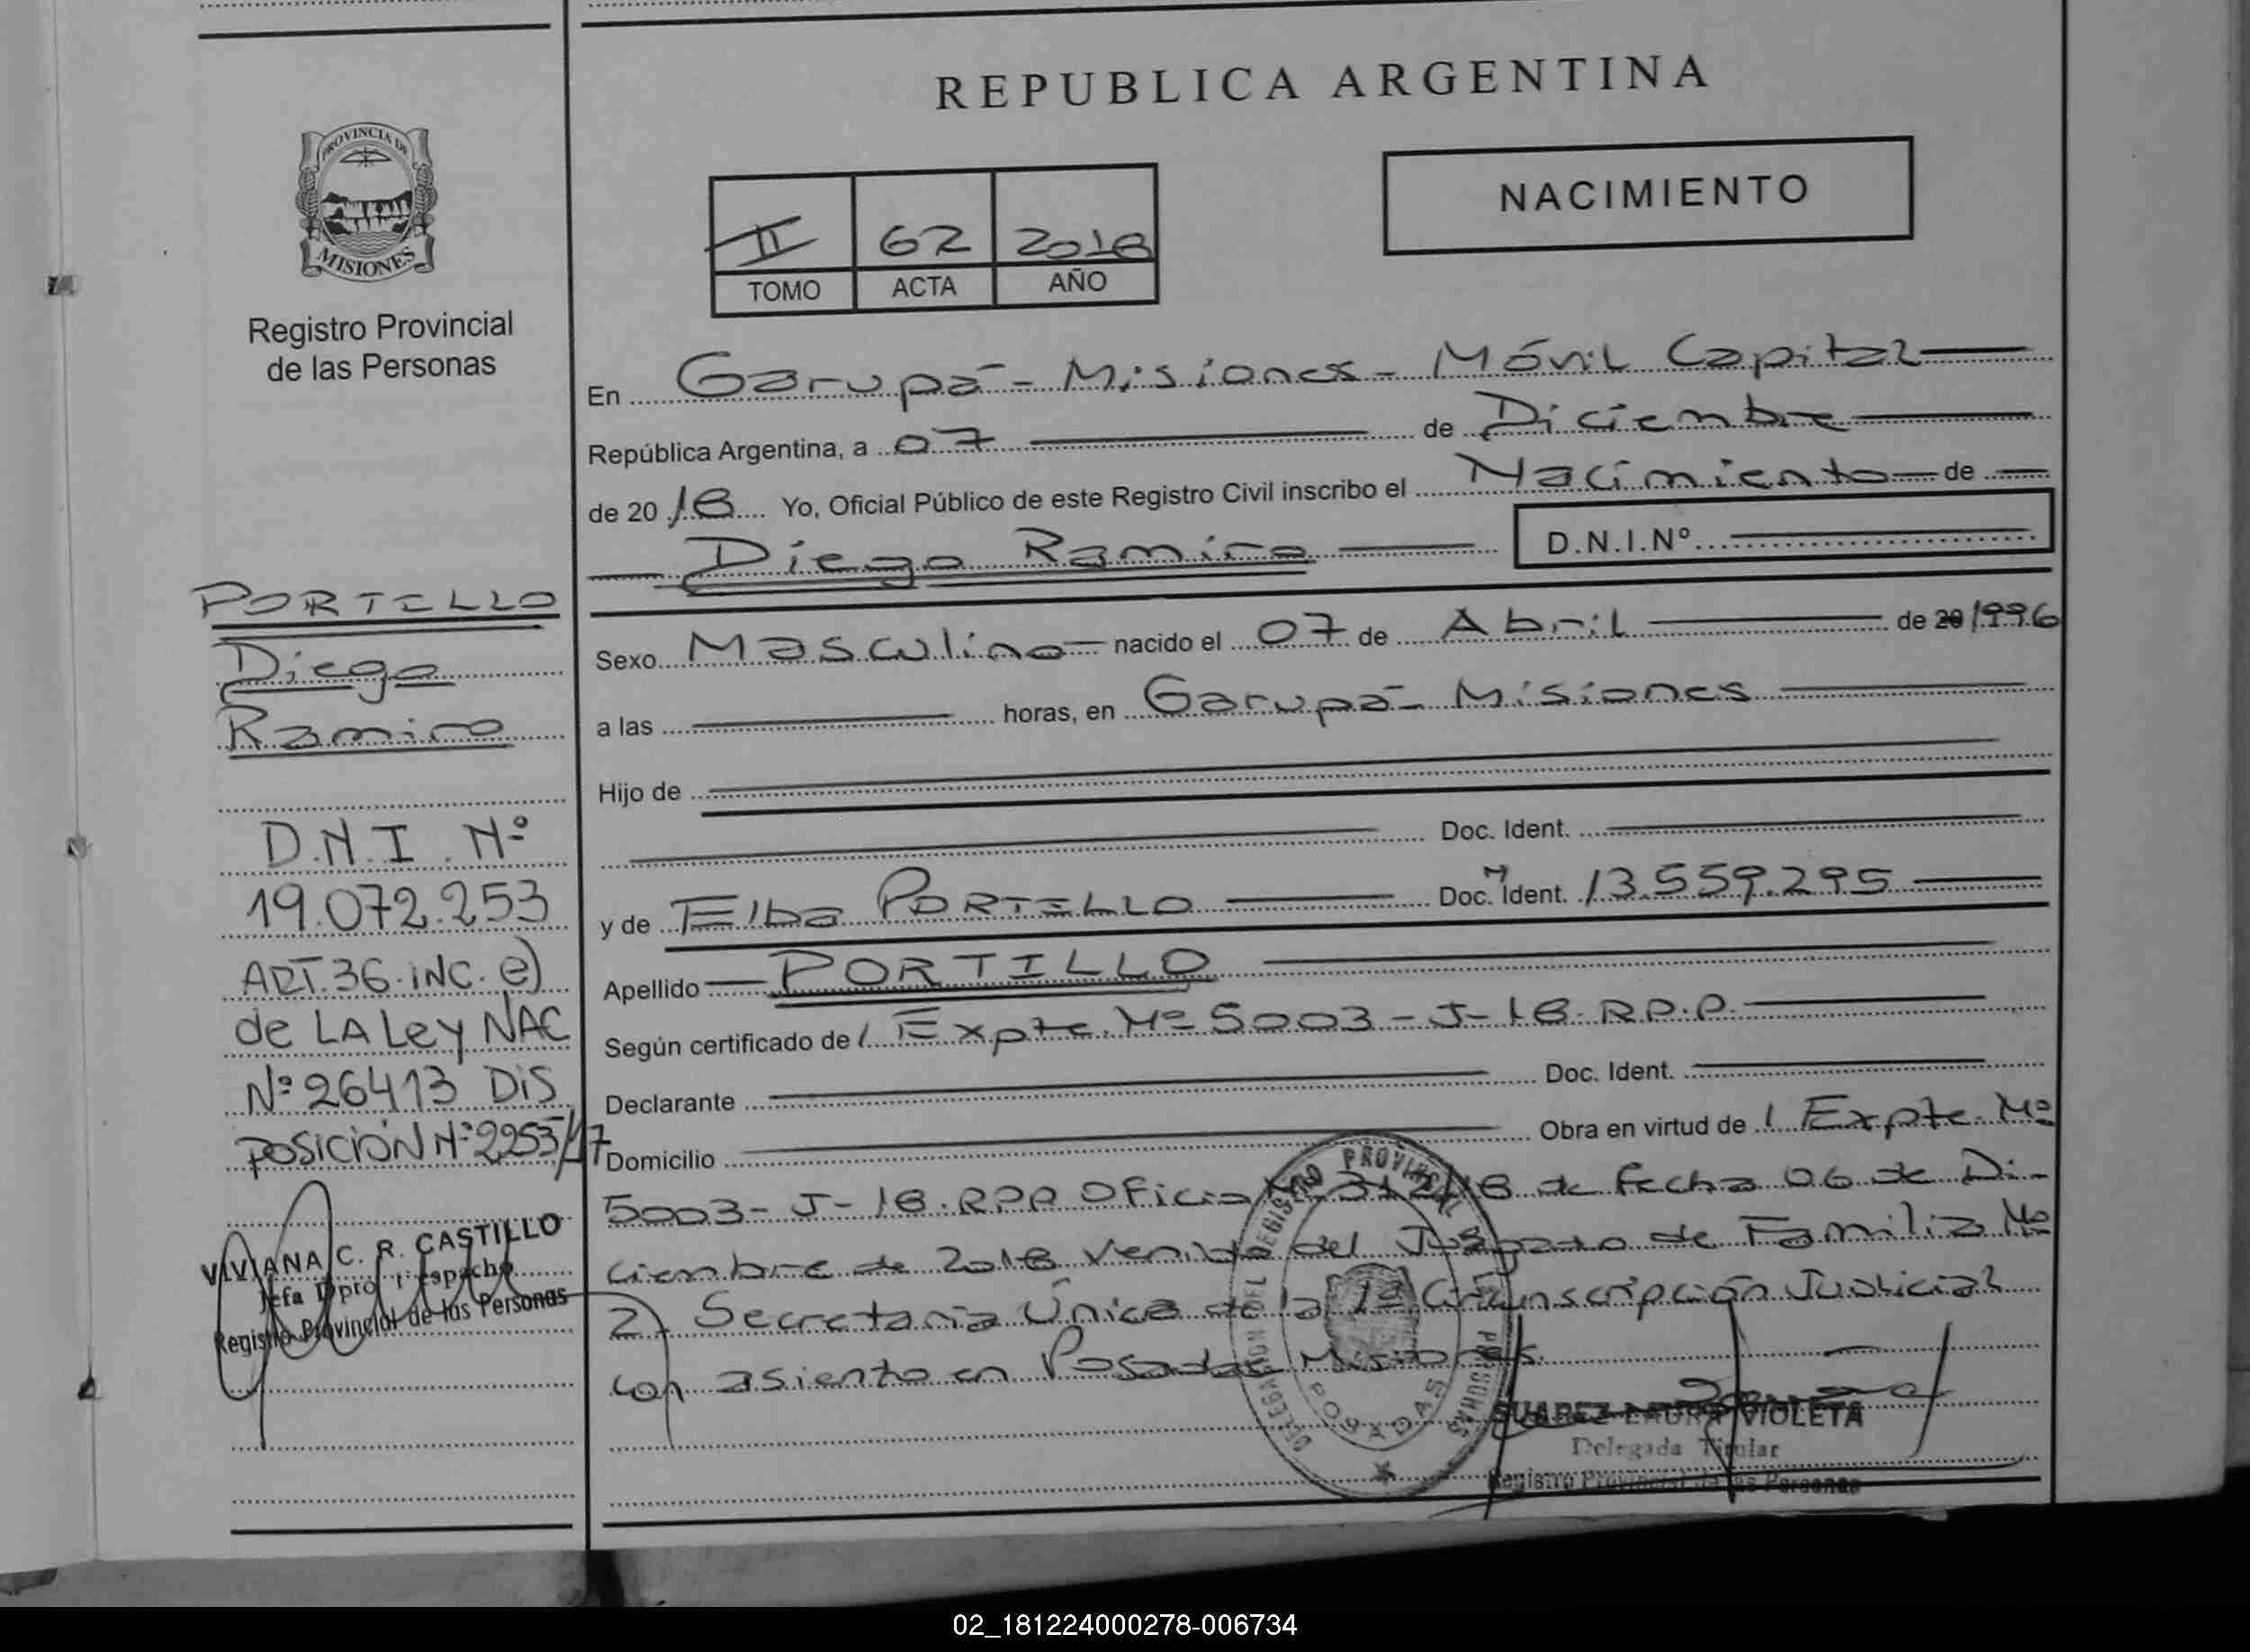 REPUBLICA ARGENTINA
PROVINCIA DE
MISIONES
Registro Provincial
de las Personas
NACIMIENTO
II 62 2018
TOMO ACTA AÑO
En Garupá - Misiones - Móvil Capital
República Argentina, a 07 de Diciembre
de 2018 Yo, Oficial Público de este Registro Civil inscribo el Nacimiento de
Diego Ramiro D.N.I.Nº
PORTILLO
Diego
Ramiro
D.N.I. Nº
19.072.253
ART.36.iNC. e)
de LA Ley NAC
Nº 26413 DiS
POSICIÓN Nº 2253/17
VIVIANA C. R. CASTILLO
Jefa Dpto
Registro Provincial de las Personas
Sexo Masculino nacido el 07 de Abril de 20 1996
a las horas, en Garupá - Misiones
Hijo de
Doc. Ident.
y de Elba PORTILLO Doc. M Ident. 13.559.295
Apellido PORTILLO
Según certificado de / Expte. Nº 5003 - J - 18. R.P.P.
Declarante Doc. Ident.
Domicilio Obra en virtud de / Expte. Nº
5003 - J - 18. RPP Oficio de fecha 06 de Di-
ciembre de 2018 venido del Juzgado de Familia Nº
2. Secretaria Única de la 1ª Circunscripción Judicial
con asiento en Posadas Misiones.
DELEGACION DEL REGISTRO PROVINCIAL DE PERSONAS
POSADAS
SUAREZ LAURA VIOLETA
Delegada Titular
Registro Provincial de las Personas
02_181224000278-006734